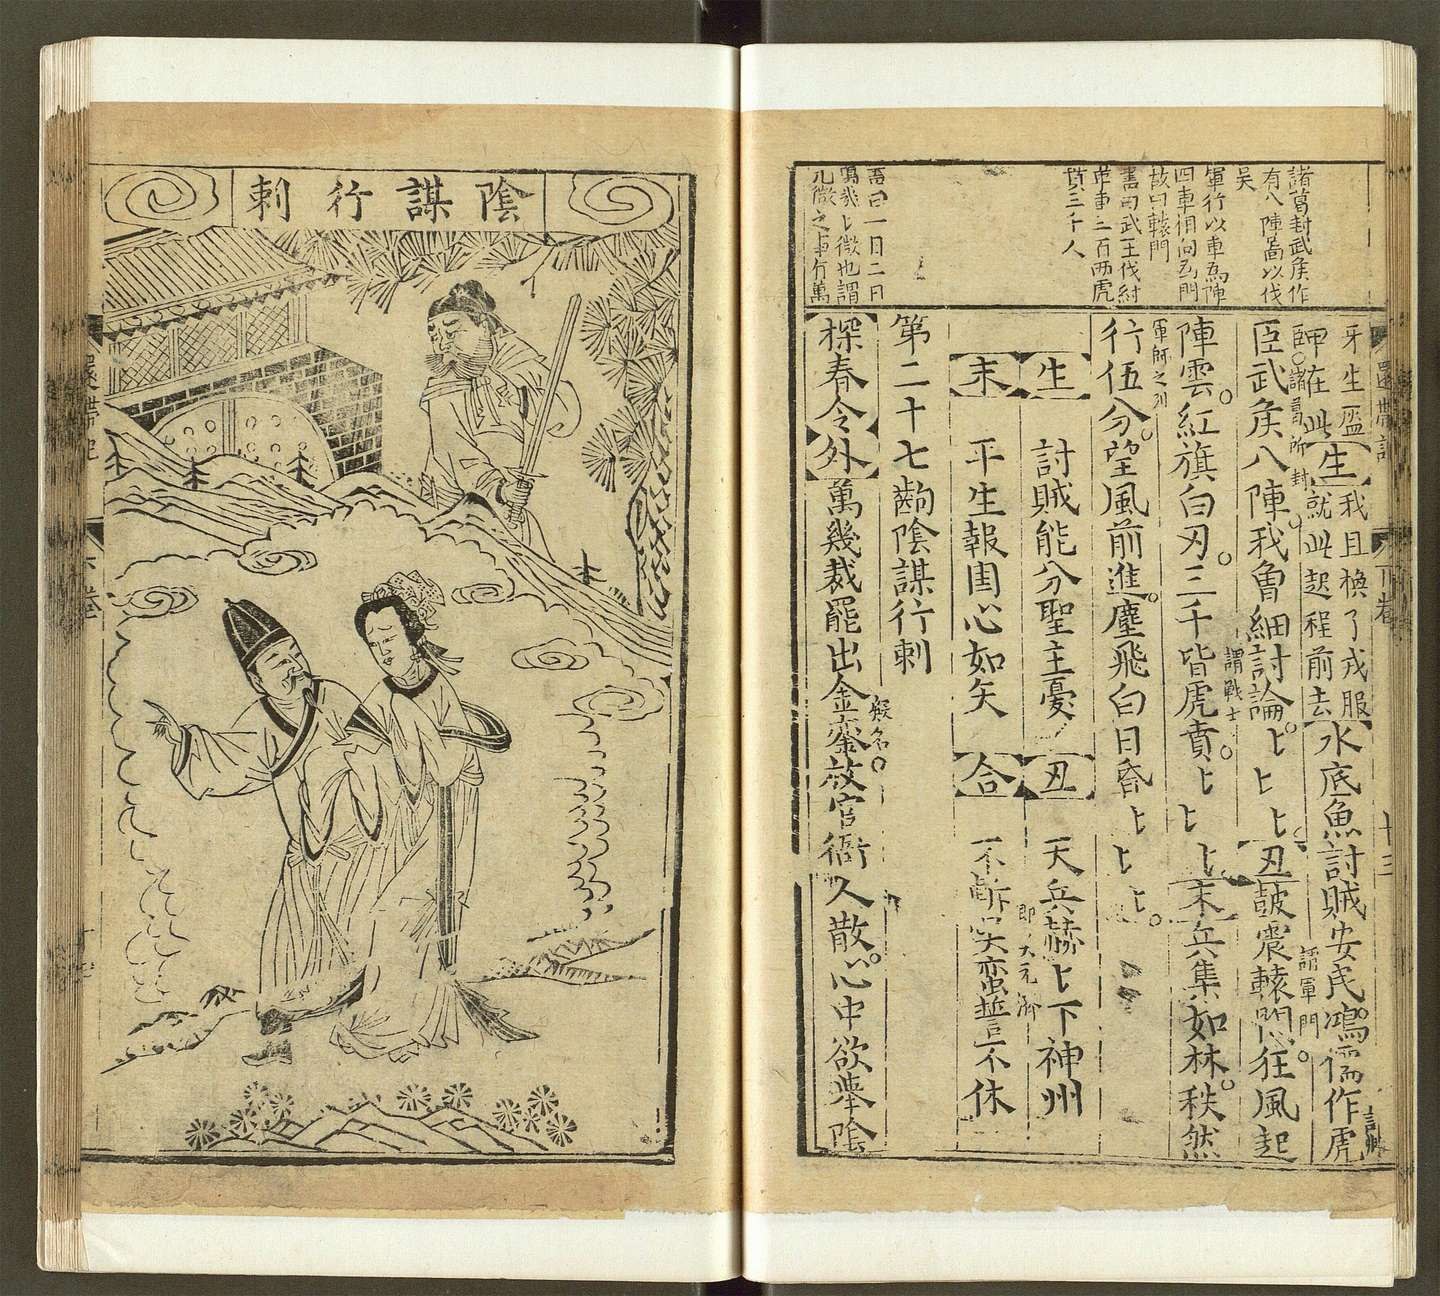 諸葛封武矦作
有八陣啚以伐
吴
軍行以車爲陣
四車相向爲門
故曰轅門
書曰武王伐紂
戎車三百兩虎
賁三千人
書曰一日二日
萬幾幾微也謂
几微之事行萬
還帶記
下卷
十三
牙生盔
生我且換了戎服
師在此
就此起程前去
水底魚討賊安民鴻儒作虎
諸葛所封
臣武矦八陣我曾細討論
謂軍門
丑鼓震轅門狂風起
謂戰士
陣雲紅旗白刃三千皆虎賁
末兵集如林秩然
軍師之列
行伍分望風前進塵飛白日昏
生
討賊能分聖主憂
丑
天兵赫赫下神州
末
平生報國心如矢
合
不斬
蛮誓不休
第二十七齣陰謀行刺
探春令外萬幾裁罷出金鑾故官衙人散心中欲舉陰
陰謀行刺